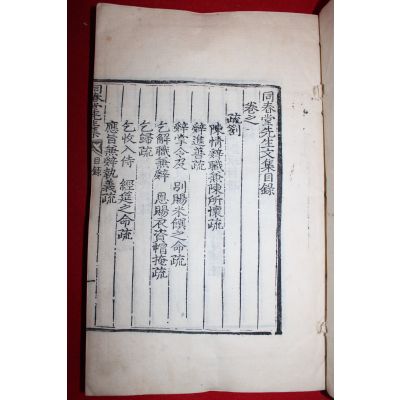 同春堂先生文集目錄
卷之
疏劄
陳情辭職兼陳所懷疏
辭進善疏
辭掌令及 別賜米饌之命疏
乞解職兼辭 恩賜衣資帽掩疏
乞歸疏
乞收入侍 經筵之命疏
應旨兼辭執義疏
同春堂先生集 目錄